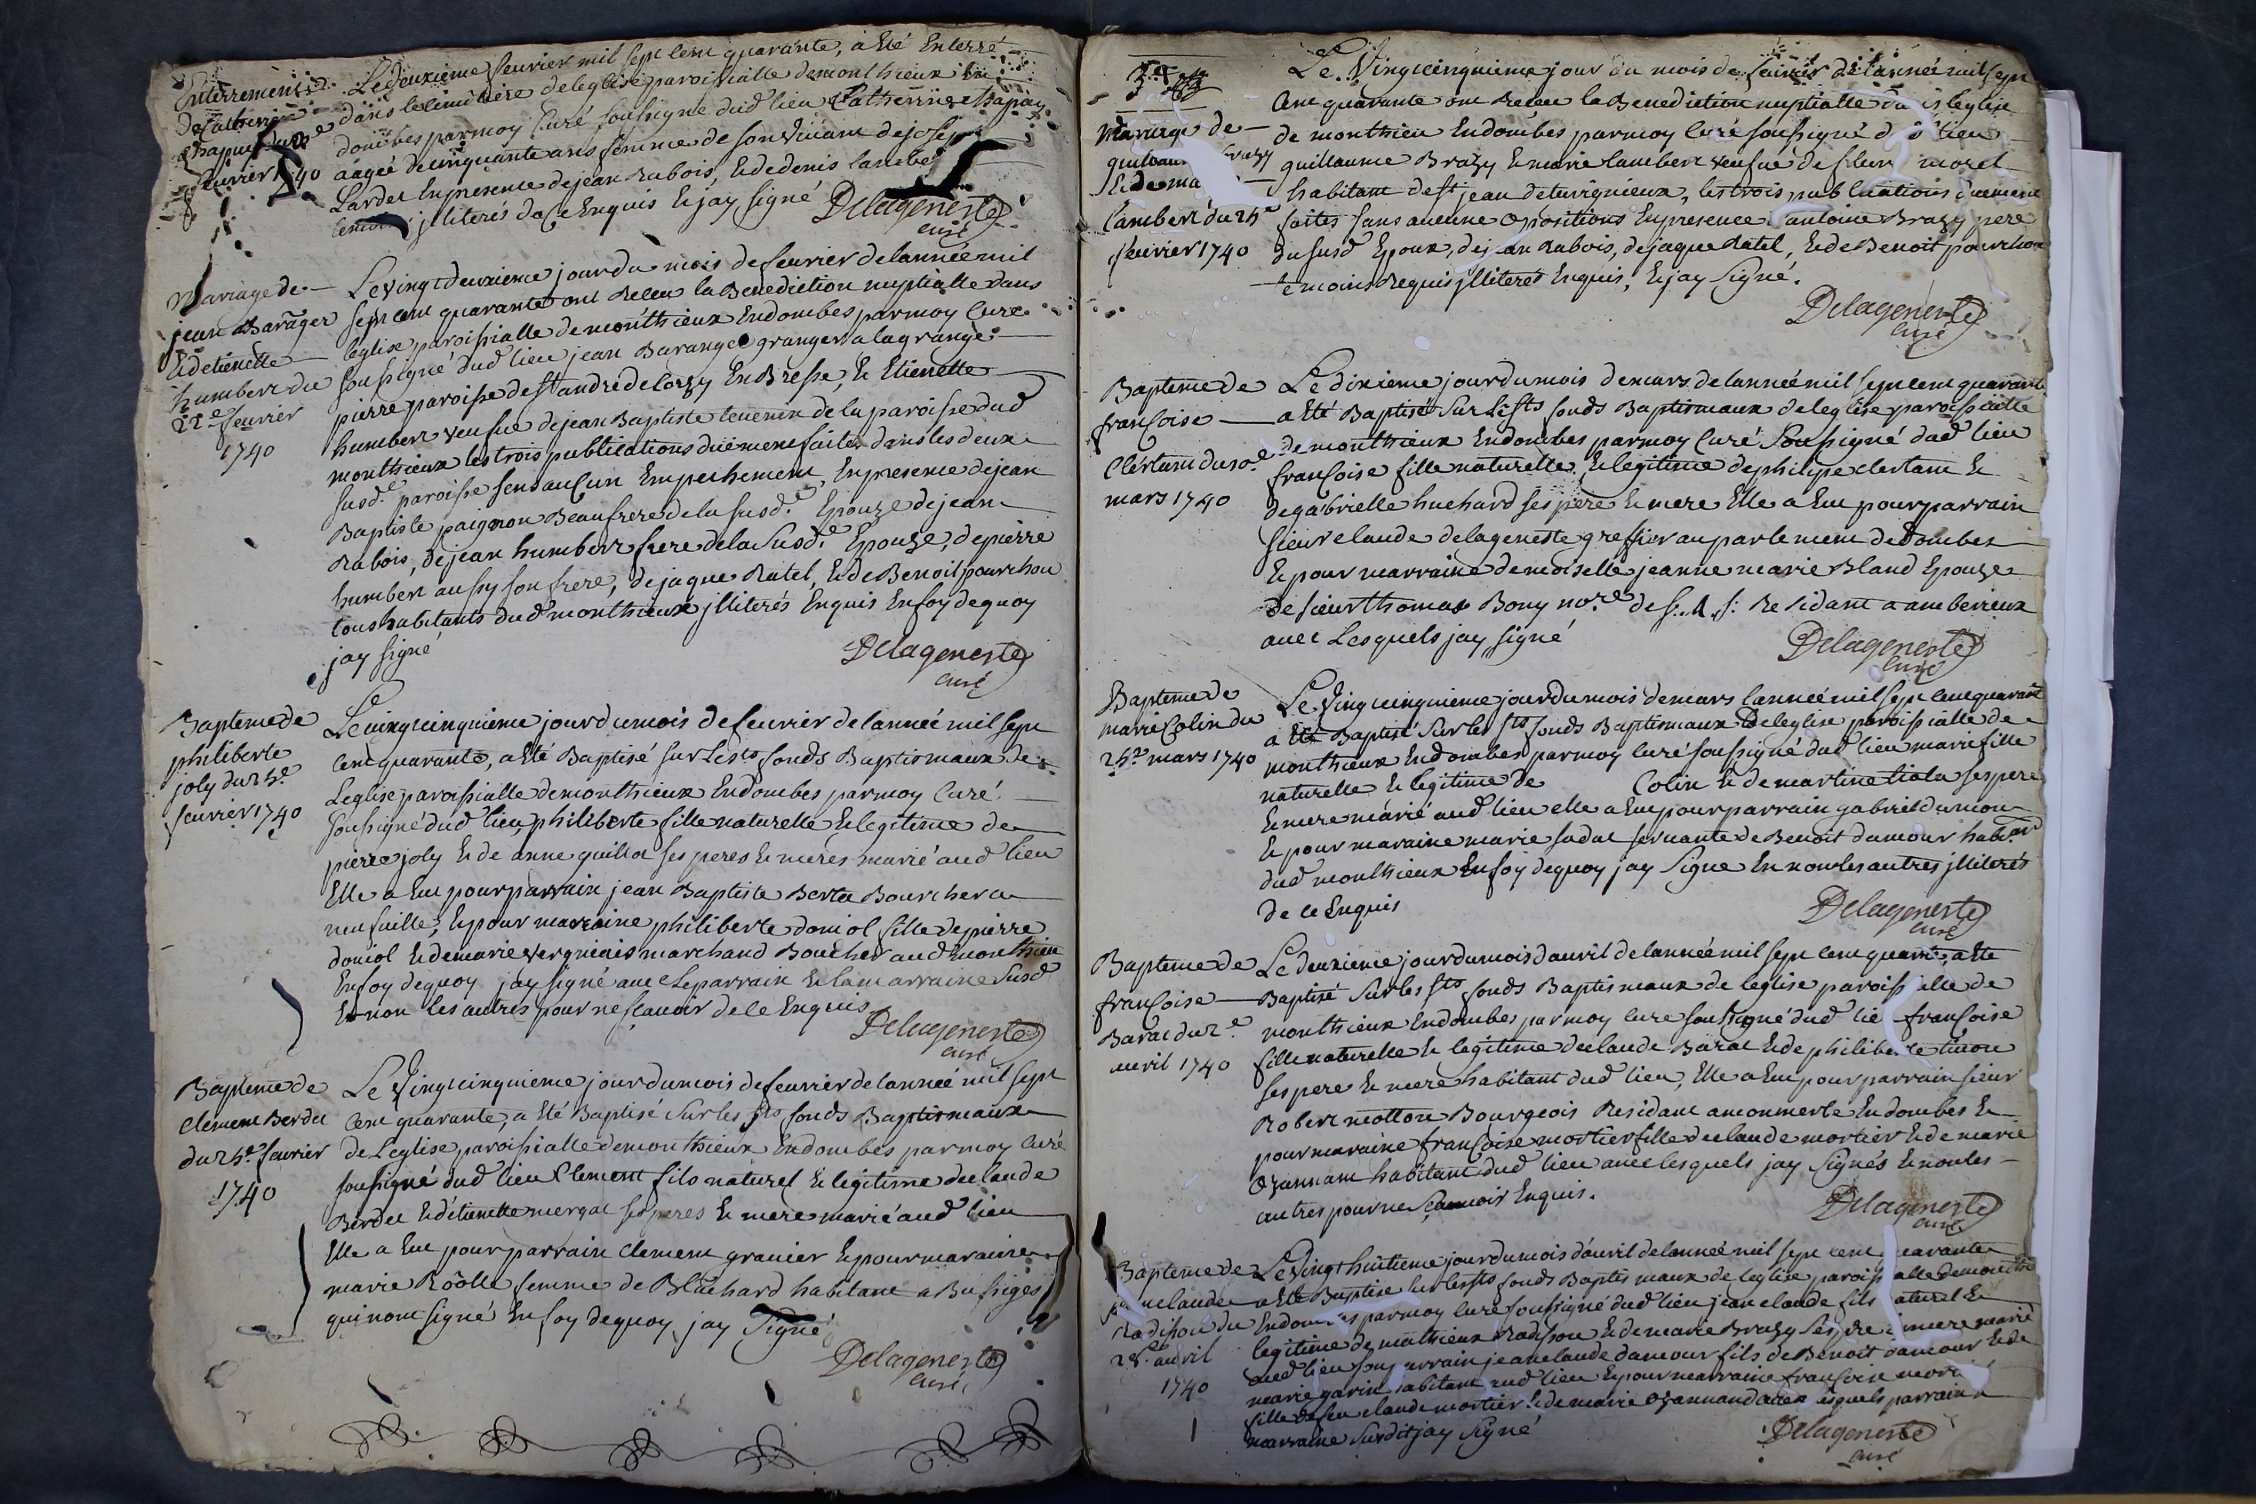 Enterrement
de Catherine
chapuy du 2e
feurier 1740
Le deuxieme feurier mil sept cent quarante, a eté Enterré
dans le cimetiere de leglise paroissialle de monthieux En
dombes par moy Curé soussigné dud lieu Catherine chapuy
aageé de cinquante ans femme de son viuant de josep
Lardet En presence de jean Rabois, et de denis lambe
jlliterés de Ce Enquis et jay signé
Delageneste
curé
Mariage de
jean Baranger
et detienette
humbert du
22e feurier
1740
Le vingt deuxieme jour du mois de feurier de lanneé mil
sept cent quarante ont Receu la Benediction nuptialle dans
leglise paroissialle de monthieux En dombes par moy Curé
soussigné dud lieu jean Baranger granger a la grange
pierre paroisse de st andré de Corzy En Bresse, et Etienette
humbert veufue de jean Baptiste teuenin de la paroisse dud
monthieux les trois publications duëment faites dans les deux
susd.e paroisse sens auCun Empechement, En presence de jean
Baptiste paignon Beaufrere de la susd.e Epouze de jean
Rabois, de jean humbert frere de la susd.e Epouze, de pierre
humbert aussy son frere, de jaque Ratel, et de Benoit pourchou
tous habitants dud monthieux jlliterés Enquis En foy de quoy
jay signé
Delageneste
curé
Bapteme de
philiberte
joly du 25e
feurier 1740
Le vingt cinquiéme jour du mois de feurier de lanneé mil sept
cent quarante, a eté Baptisé sur les sts fonds Baptismaux de
Leglise paroissialle de monthieux En dombes par moy Curé
soussigné dud lieu, philiberte fille naturelle et legitime de
pierre joly et de anne guillot ses peres et meres marié aud lieu
Elle a Eut pour parrain jean Baptiste Berta Bourcher a
neufuille, et pour marraine philiberte doniol fille de pierre
doniol et de marie vergniais marchand Boucher aud monthieu
En foy de quoy jay signé auec le parrain et la marraine susd
et non les autres pour ne sçauoir de Ce Enquis
Delageneste
curé
Bapteme de
Clement Berdet
du 25e feurier
1740
Le vingt cinquieme jour du mois de feurier de lanneé mil sept
cent quarante, a eté Baptisé sur les sts fonds Baptismaux
de Leglise paroissialle de monthieux En dombes par moy Curé
soussigné dud lieu Clement fils naturel et legitime de claude
Berdet et détienette mergat ses peres et mere marié aud lieu
Elle a Eut pour parrain Clement granier et pour maraine
marie Roôlle femme de Blachard habitant a Bussiges
qui nont signé En foy de quoy jay signé
Delageneste
curé
3e
Mariage de
guillaume Brazy
et de marie
lambert du 25e
feurier 1740
Le Vingt cinquieme jour du mois de feurier de lanneé mil sept
Cent quarante ont Receu la Benediction nuptialle dans leglise
de monthieu En dombes par moy Curé soussigné dud lieu
guillaume Brazy et marie lambert veufue de fleury morel
habitant de st jean de turigneux, les trois publications duement
faites sans aucune opositions En presence dantoine Brazy pere
du susd Epoux, de jean Rabois, de jaque Ratel, et de Benoit pourchou
temoins Requis jlliterés Enquis, et jay signé.
Delageneste
curé
Bapteme de
françoise
Clertant du 10e
mars 1740
Le dixieme jour du mois de mars de lanneé mil sept cent quarante
a eté Baptisé sur les sts fonds Baptismaux de leglise paroissialle
de monthieux En dombes par moy Curé soussigné dud lieu
françoise fille naturelle et legitime de philipe clertant et
de gabrielle huchard ses pere et mere Elle a Eut pour parrain
sieur claude delageneste greffier au parlement de dombes
et pour marraine demoiselle jeanne marie Bland Epouze
de sieur thomas Bony no.re de s: A. s: Residant a amberieux
auec Lesquels jay signé
Delageneste
curé
Bapteme de
marie Colin du
25e mars 1740
Le vingt cinquieme jour du mois de mars lanneé mil sept cent quarante
a eté Baptisé sur les sts fonds Baptismaux de leglise paroissialle de
monthieux En dombes par moy curé soussigné dud lieu marie fille
naturelle et legitime de Colin et de martine tiola ses pere
et mere marié aud lieu elle a Eut pour parrain gabriel dumon
et pour maraine marie sadat seruante de Benoit damour habt
dud monthieux En foy de quoy jay signé et non les autres jlliterés
de ce Enquis
Delageneste
curé
Bapteme de
françoise
Barat du 2e
auril 1740
Le deuxieme jour du mois dauril de lanneé mil sept cent quarante, a eté
Baptisé sur les sts fonds Baptismaux de leglise paroissialle de
monthieux En dombes par moy curé soussigné dud lieu françoise
fille naturelle et legitime de claude Barat et de philiberte tinon
ses pere et mere habitant dud lieu, Elle a Eut pour parrain sieur
Robert motton Bourgeois Residant a monmerle En dombes et
pour maraine françoise mortier fille de claude mortier et de marie
Ozannam habitant dud lieu auec lesquels jay signés et non les
autres pour ne sçauoir Enquis.
Delageneste
curé
Bapteme de
jean claude
Radisson du
28e auril
1740
Le vingt huitieme jour du mois dauril de lanneé mil sept cent quarante
a eté Baptisé sur les sts fonds Baptismaux de leglise paroissialle de monthieu
En dombes par moy curé soussigné dud lieu jean claude fils naturel et
legitime de mathieux Radisson et de marie Brazy ses pere et mere marié
aud lieu son parrain jean claude damour fils de Benoit damour et de
marie garin habitant aud lieu et pour marraine françoise mortier
fille de feu claude mortier et de marie Ozannand auec lesquels parrain
marraine susdit jay signé
Delageneste
curé